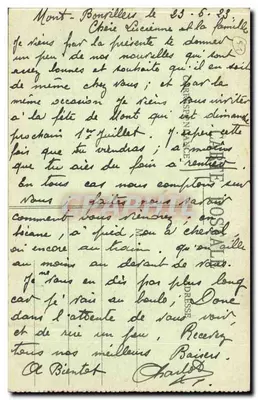 Mont-Bonvillers le 23-6-23
Chère Lucienne et la famille
Je viens par la présente te donner
un peu de nos nouvelles qui sont
assez bonnes et souhaite qu'il en soit
de même chez vous ; et par la
même occasion je viens vous inviter
à la fête de Mont qui est dimanche
prochain 1er Juillet. J'espère cette
fois que tu viendras ; à moins
que tu aies du foin à rentrer.
En tous cas nous comptons sur
vous faites nous savoir
comment vous viendrez ; en
à pied ou à cheval
ou encore au train qu'on aille
au moins au devant de vous.
Je vous en dis pas plus long
car je vais au boulo ; Donc
dans l'attente de vous voir
et de rire un peu, Recevez
tous nos meilleurs Baisers.
A Bientot
CARTE POSTALE
CORRESPONDANCE